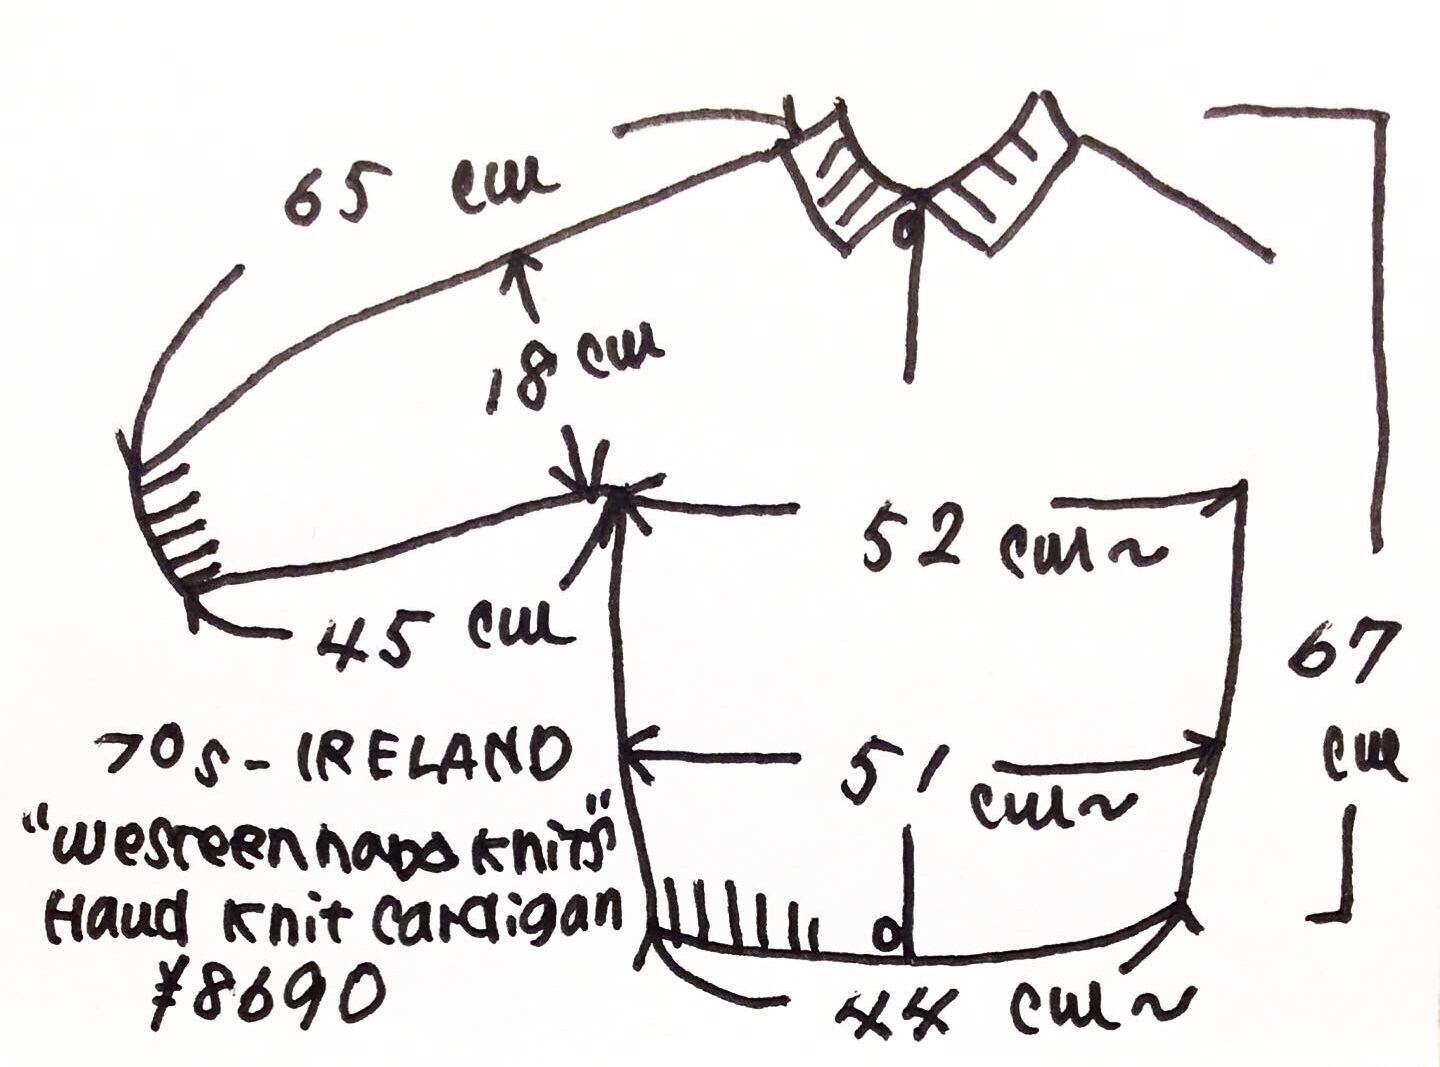 65 cm
18 cm
52 cm~
45 cm
67
cm
51
cm~
70s-IRELAND
"westeen hand knits"
Hand knit cardigan
¥8690
44 cm~